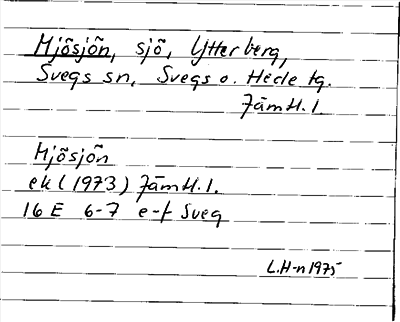 Mjösjön, sjö, Ytterberg,
Svegs sn, Svegs o. Hede tg.
Jämtl. l.
Mjösjön
ek (1973) Jämtl. l.
16 E 6-7 e-f Sveg
L.H-n 1975